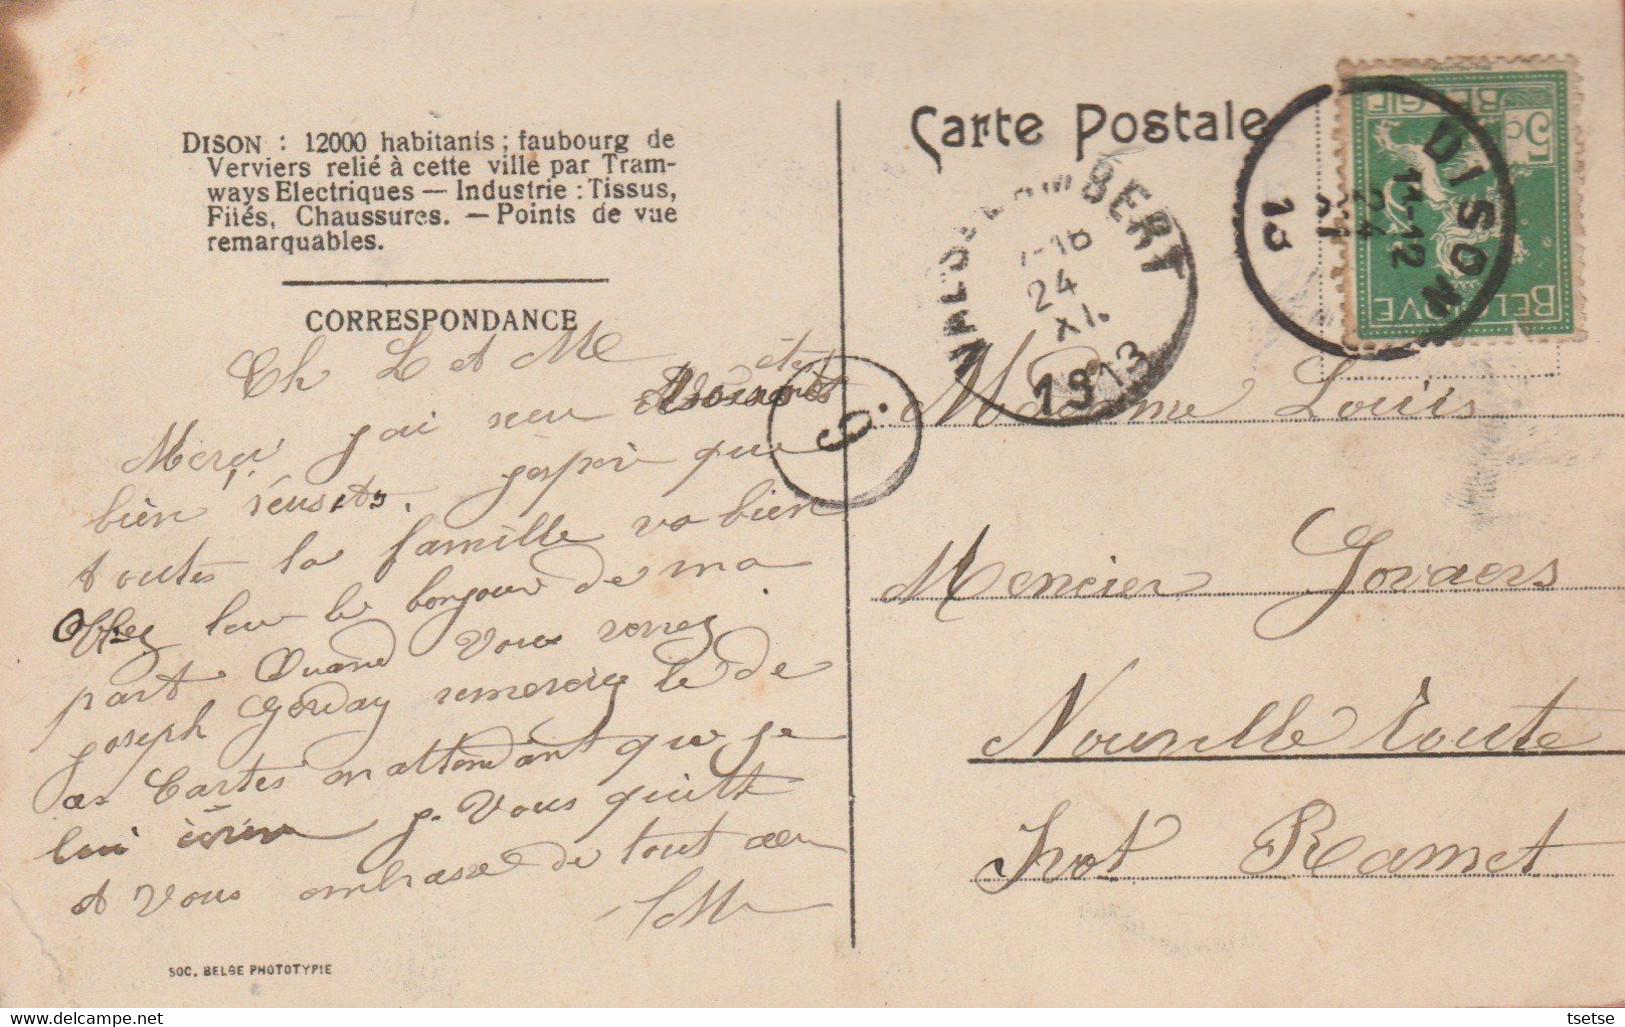 DISON : 12000 habitants ; faubourg de
Verviers relié à cette ville par Tram-
ways Electriques — Industrie : Tissus,
Filés, Chaussures. — Points de vue
remarquables.
CORRESPONDANCE
Ch L et M
Merci j'ai reçu été
bien réussits. j'espère que
toutes la famille va bien
Offrez leur le bonjour de ma
part Quand Vous venez
joseph remerciez le de
as Cartes en attendant que je
lui écrire je Vous quitt
et Vous embrasse de tout
SOC. BELGE PHOTOTYPIE
Carte Postale
BERT
24
XI
1913
DISON
11-12
24
XI
13
5c
BELGIE
BELGIQUE
9
Madame Louis
Mencier Govaers
Nouvelle route
Ivot Ramet
tsetse
www.delcampe.net